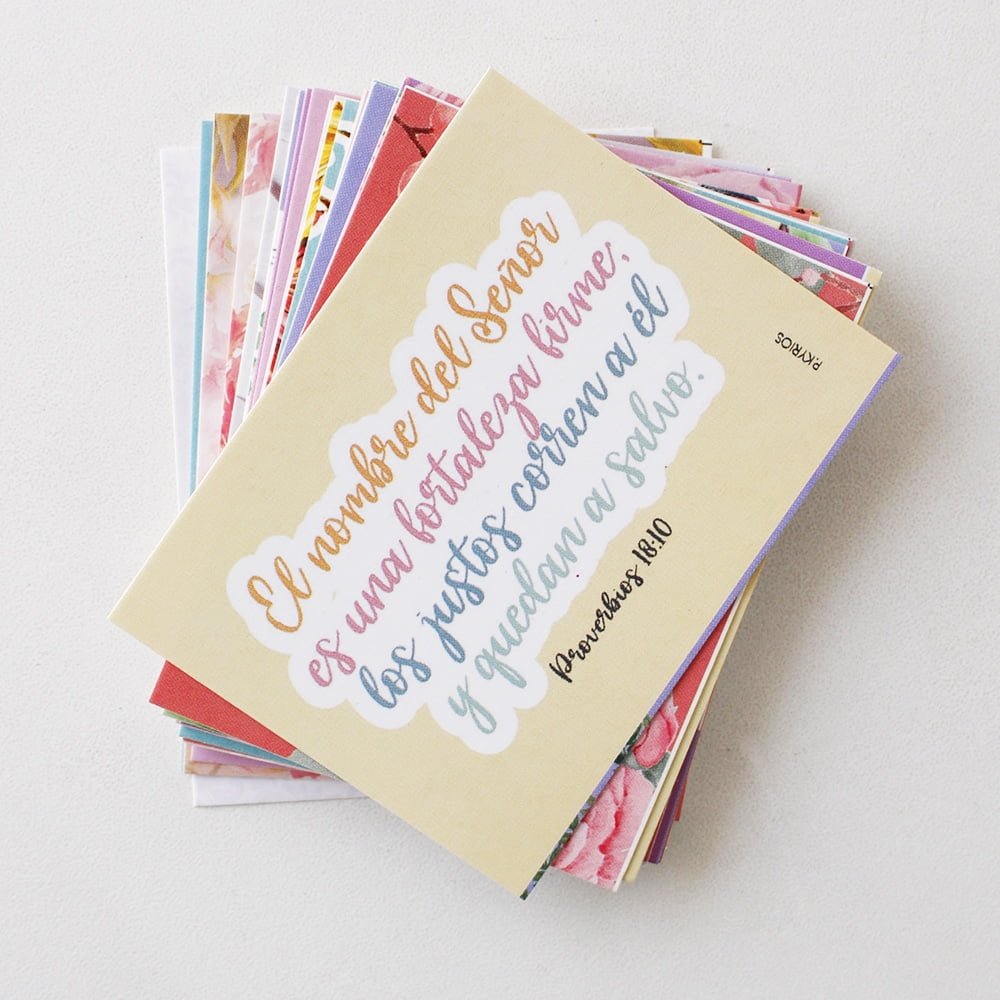 El nombre del Señor
es una fortaleza firme;
los justos corren a él
y quedan a salvo.
Proverbios 18:10
P.KYRIOS